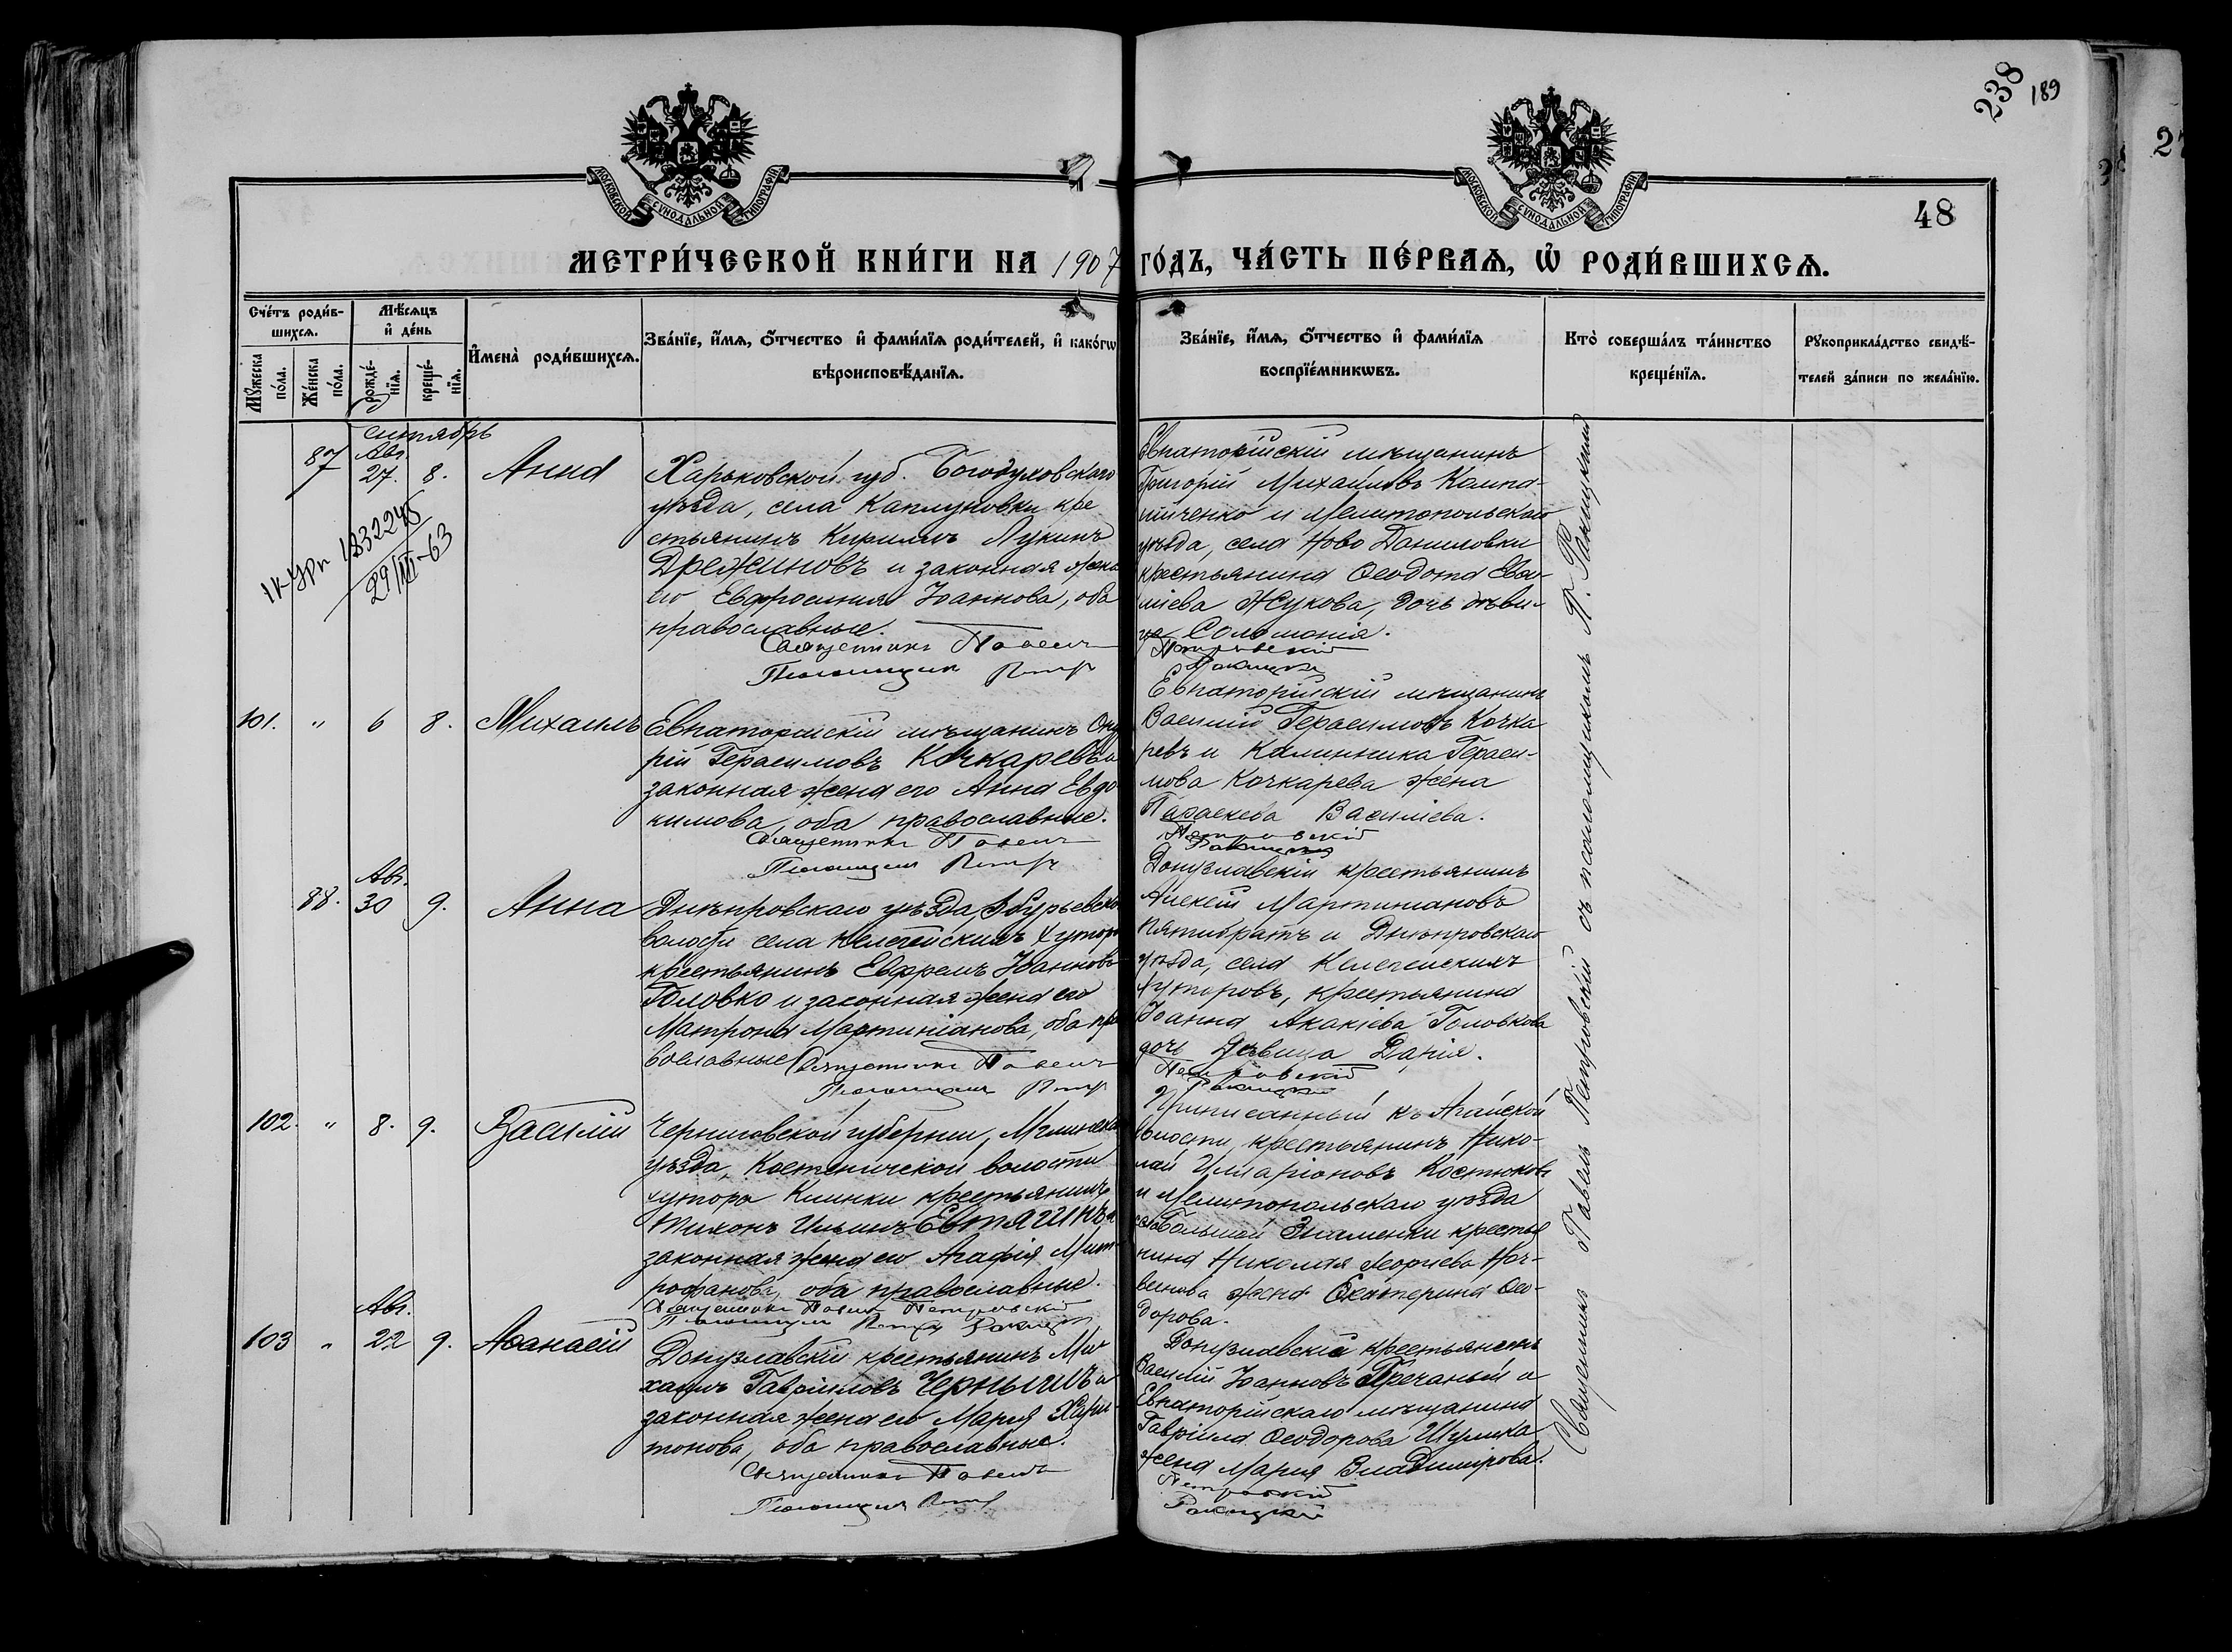 238
189
48
МОСКОВСКОЙ СѴНОДАЛЬНОЙ ТИПОГРАФІИ
МОСКОВСКОЙ СѴНОДАЛЬНОЙ ТИПОГРАФІИ
МЕТРИ́ЧЕСКОЙ КНИ́ГИ НА 1907 ГО́ДЪ, ЧА́СТЬ ПЕ́РВАѦ, Ѡ҆ РОДИ́ВШИХСѦ.
Сче́тъ роди́в-
шихсѧ.
Мꙋ́жеска
по́ла.
Же́нска
по́ла.
Мѣ́сѧцъ
и҆ де́нь
рожде́-
нїѧ.
креще́-
нїѧ.
И҆мена̀ роди́вшихсѧ.
Зва́нїе, и҆́мѧ, ѻ҆́тчество и҆ фами́лїѧ роди́телей, и҆ како́гѡ
вѣроисповѣ́данїѧ.
Зва́нїе, и҆́мѧ, ѻ҆́тчество и҆ фами́лїѧ
воспрїе́мникѡвъ.
Кто̀ соверша́лъ та́инство
креще́нїѧ.
Рꙋкоприкла́дство свидѣ́-
телей за́писи по жела́нїю.
Сентябрь
87
Авг.
27. 8.
Анна
Харьковской губ. Богодуховскаго
уѣзда, села Каплуновки кре
стьянинъ Кириллъ Лукинъ
Дрежиновъ и законная жена
его Евфросинія Іоаннова, оба
православные.
Священникъ Павелъ
Псаломщик Петръ
Евпаторійскій мѣщанинъ
Григорій Михайловъ Компа-
нійченко и Мелитопольскаго
уѣзда, села Ново Даниловки
крестьянина Ѳеодота
Жукова, дочь дѣви-
ца Соломонія.
Петровскій
Ракицкій
183224
29/III-63
101. " 6 8.
Михаилъ
Евпаторійскій мѣщанинъ
рій Герасимовъ Кочкаревъ и
законная жена его Анна Евдо
кимова, оба православные.
Священникъ Павелъ
Псаломщик Петръ
Евпаторійскій мѣщанинъ
Василій Герасимовъ Кочка
ревъ и Калинника Гераси-
мова Кочкарева жена
Параскева Василіева.
Петровскій
Ракицкій
88.
Авг.
30 9.
Анна
Днѣпровскаго уѣзда, Збурьевской
волости села Келегейскихъ Хуторо
крестьянинъ Ефремъ Іоанновъ
Головко и законная жена его
Матрона Мартиніанова, оба пра
вославные Священникъ Павелъ
Псаломщик Петръ
Донузлавскій крестьянинъ
Алексій Мартиніановъ
Пятибратъ и Днѣпровскаго
уѣзда, села Келегейскихъ
хуторовъ, крестьянина
Іоанна Акакіева Головкова
дочь дѣвица Дарія.
Петровскій
Ракицкій
102. " 8. 9.
Василій
Черниговской губерніи, Мглинска
уѣзда, Костеничской волости
хутора Клинки крестьянинъ
Тихонъ Ильинъ Евтягинъ и
законная жена его Агафія Мит-
рофанова, оба православные.
Священникъ Павелъ Петровскій
Псаломщик Петръ Ракицкій
Приписанный къ Агайской
волости крестьянинъ Нико-
лай Иларіоновъ Костюковъ
и Мелитопольскаго уѣзда
Большой Знаменки крестья
нина Николая Георгіева
жена Екатерина Ѳео-
дорова.
103 "
Авг.
22 9.
Аѳанасій
Донузлавскій крестьянинъ Ми
хаилъ Гавріиловъ Чернышъ и
законная жена его Марія Хари-
тонова, оба православные.
Священникъ Павелъ
Псаломщик Петръ
Донузлавскій крестьянинъ
Василій Іоанновъ Гречаный и
Евпаторійскаго мѣщанина
Гавріила Ѳеодорова Шумка
жена Марія Владимірова.
Петровскій
Ракицкій
Священникъ Павелъ Петровскій съ псаломщикомъ П. Ракицкимъ